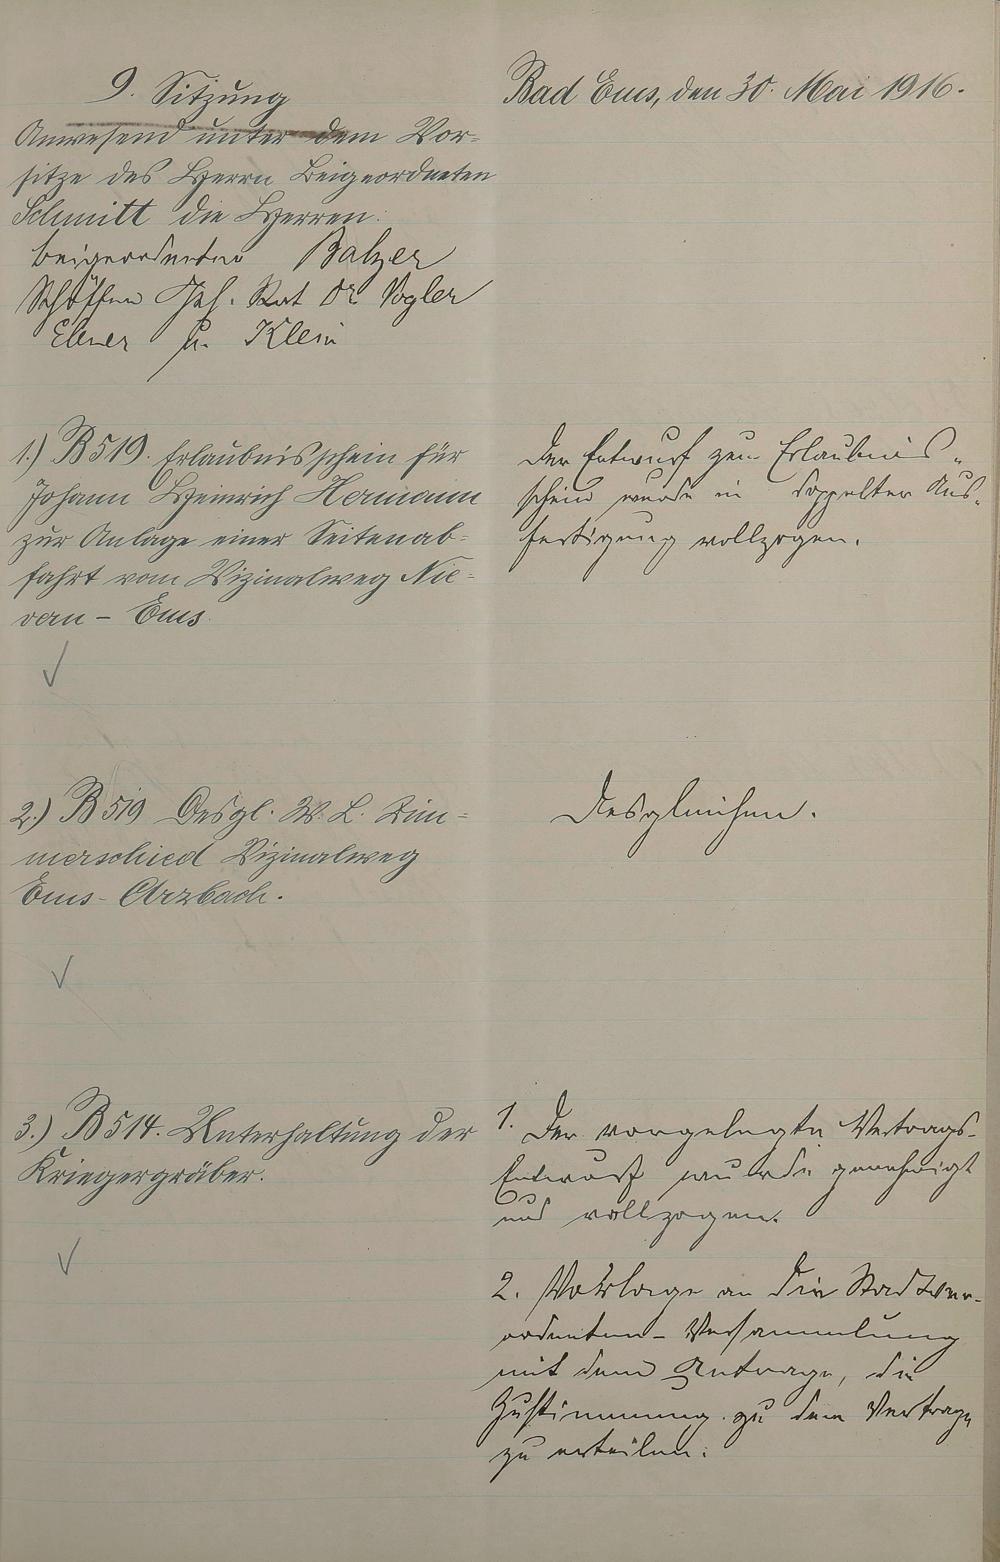 9. Sitzung
Bad Ems, den 30. Mai 1916.
Anwesend unter dem Vor=
sitze des Herrn Beigeordneten
Schmitt die Herren:
Beigeordneter Balzer
Schöffen Geh. Rat Dr. Vogler
Ebner u. Klein
1.) B 519. Erlaubnisschein für
Johann Heinrich Hermann
zur Anlage einer Seitenab=
fahrt vom Vizinalweg Nie=
vern - Ems.
Der Entwurf zum Erlaubnis-
schein wurde in doppelter Aus-
fertigung vollzogen.
2.) B 519 Desgl. W. L. Zim=
merschied Vizinalweg
Ems-Arzbach.
Desgleichen.
3.) B 514. Unterhaltung der
Kriegergräber.
1. Der vorgelegte Vertrags-
Entwurf wurde genehmigt
und vollzogen.
2. Vorlage an die Stadtver-
ordneten-Versammlung
mit dem Antrage, die
Zustimmung zu dem Vertrage
zu erteilen.